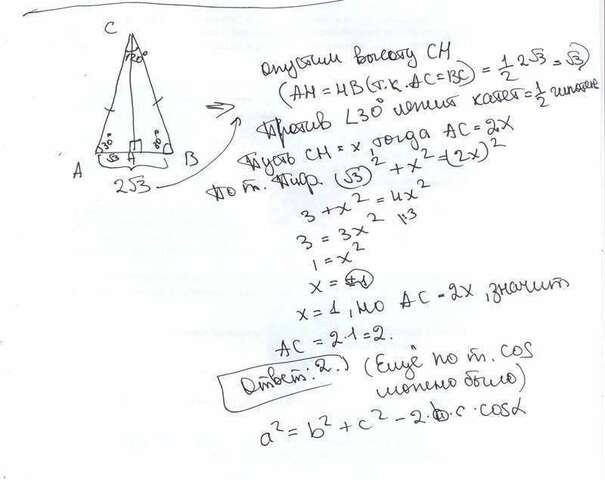 C
120°
30°
30°
√3
H
A
B
2√3
опустим высоту CH
(AH = HB (т.к. AC = BC) = 1/2 2√3 = √3)
Против ∠30° лежит катет = 1/2 гипотен
Пусть CH = x тогда AC = 2x
По т. Пиф. (√3)² + x² = (2x)²
3 + x² = 4x²
3 = 3x² |:3
1 = x²
x = ±1
x = 1, но AC = 2x, значит
AC = 2·1 = 2.
Ответ: 2.
(Ещё по т. cos
можно было)
a² = b² + c² - 2·b·c·cosα